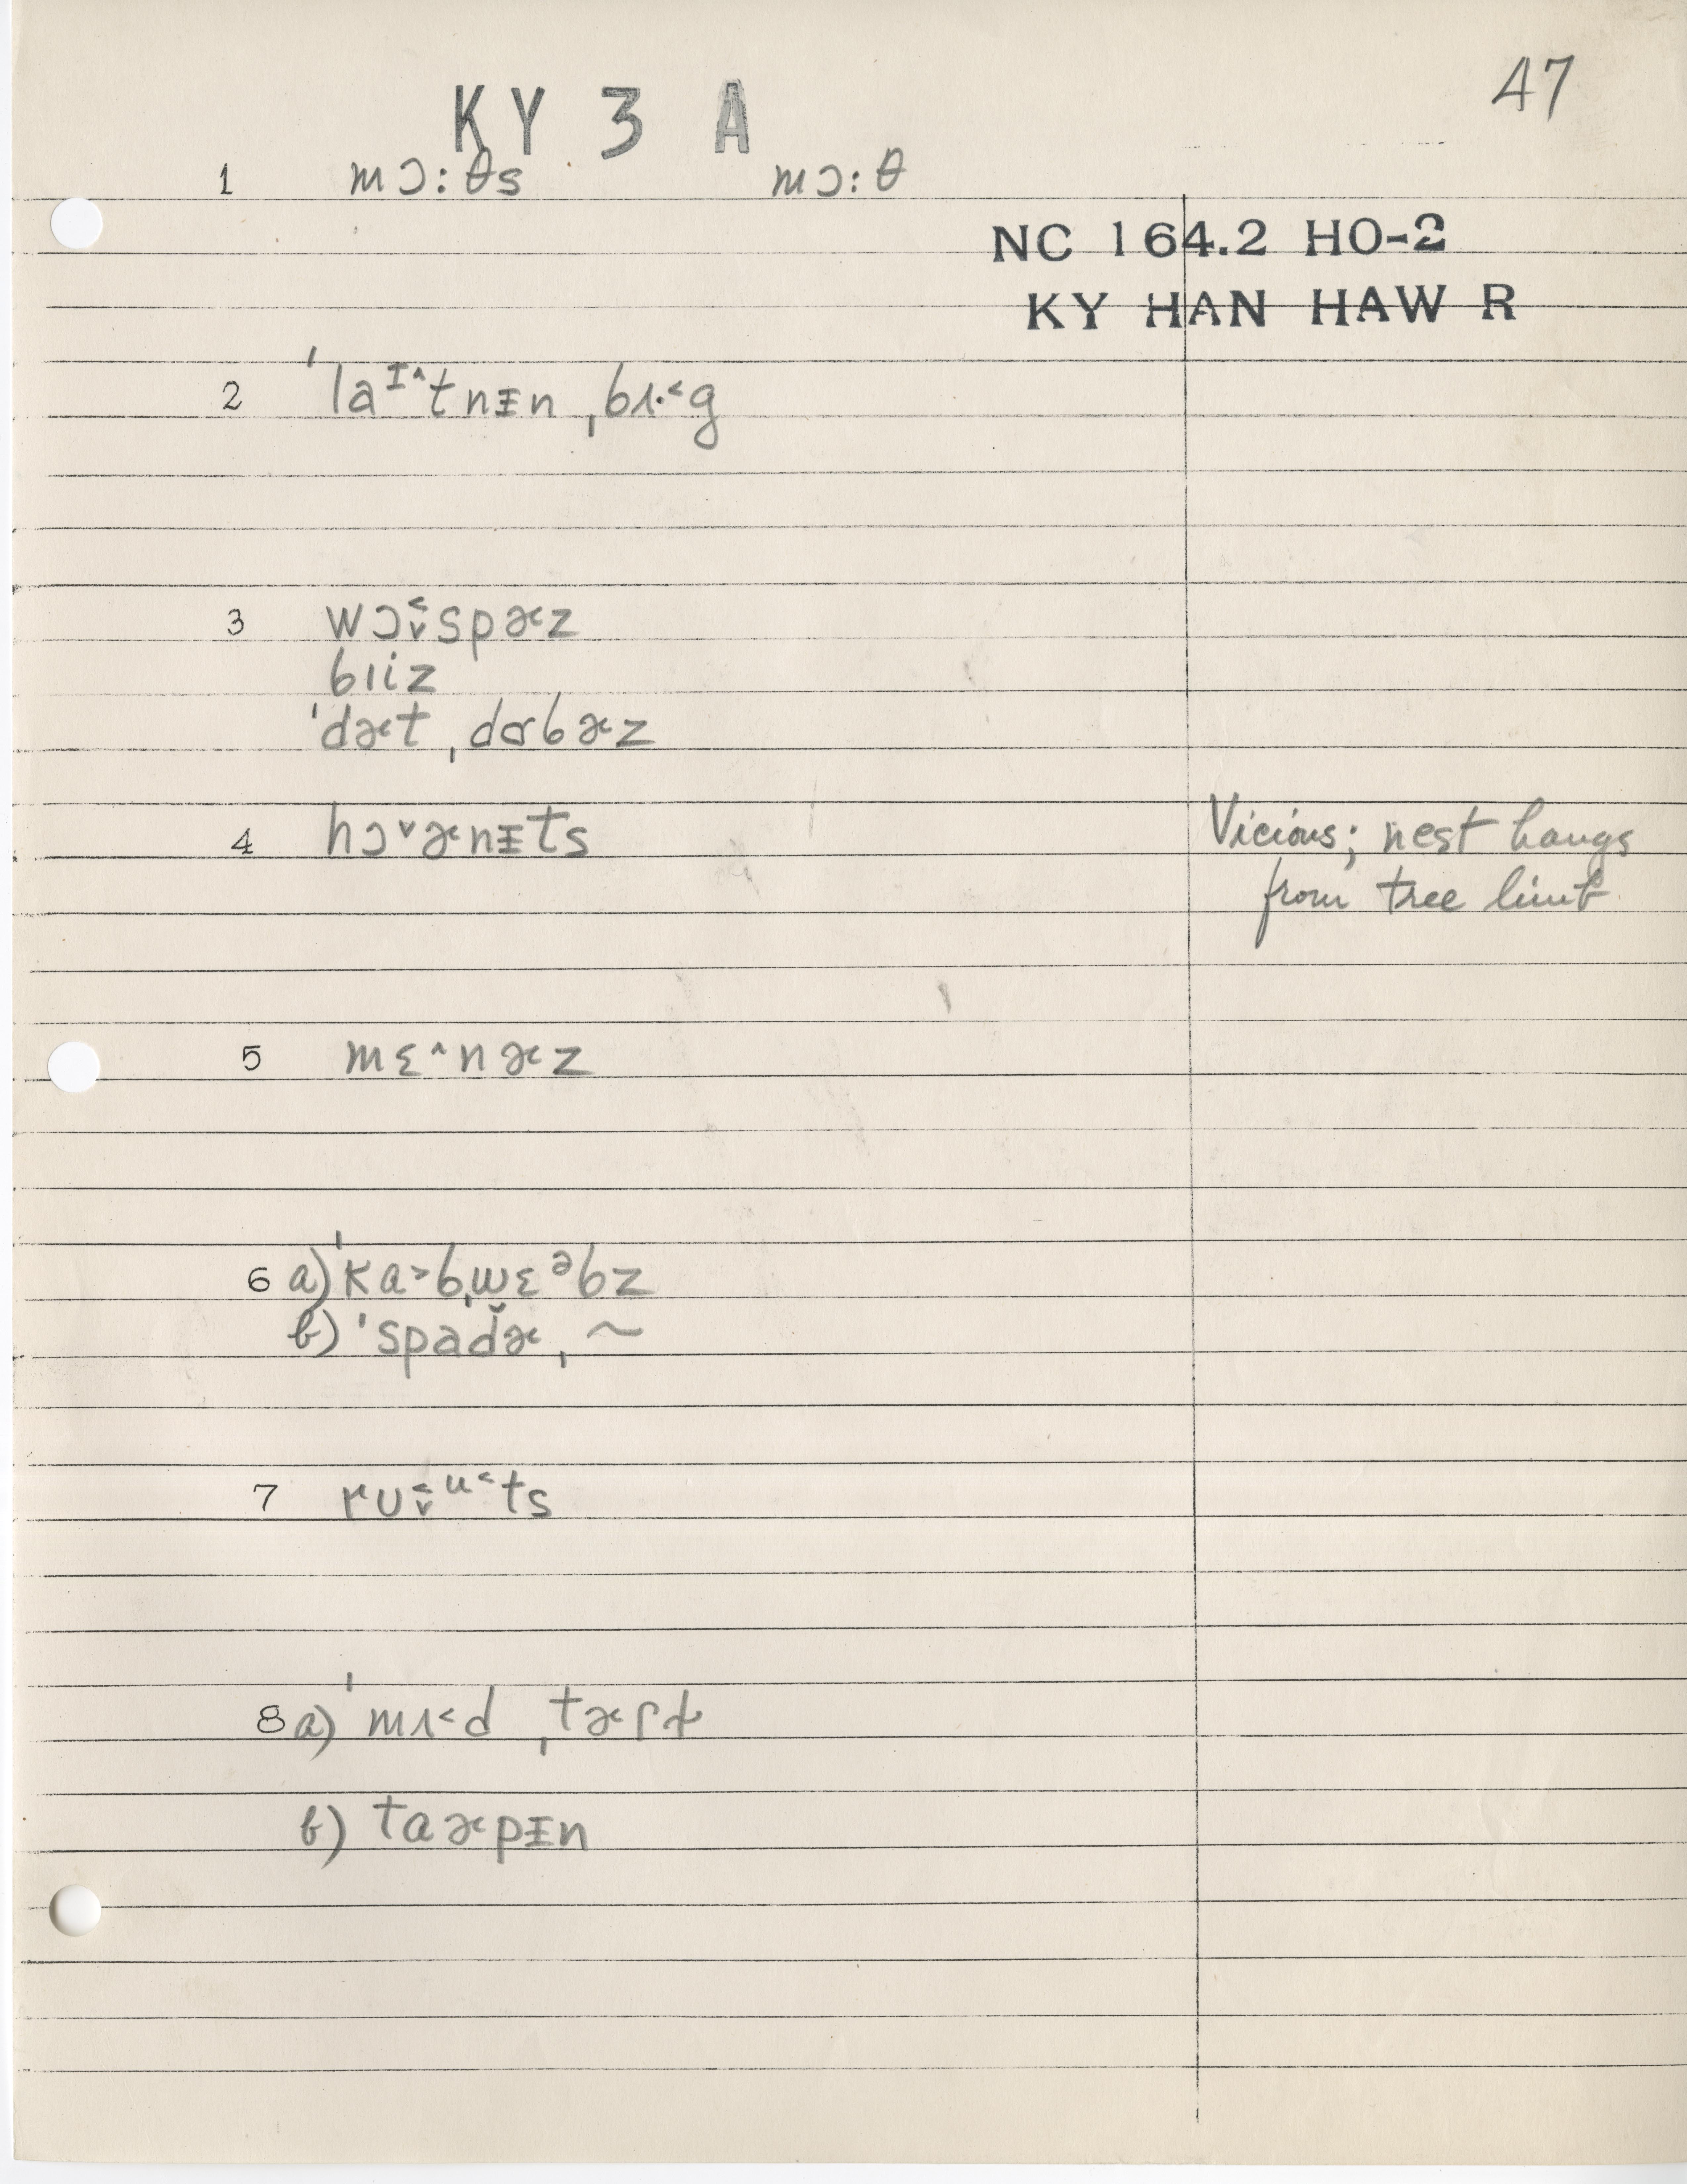 47
KY 3 A
1 mɔ:θs mɔ:θ
NC 164.2 HO-2
KY HAN HAW R
2 ˈlaɪ^tnᵻn ˌbʌ·˂g
3 wɔ˂˅spɚz
bɪiz
ˈdɚt ˌdɑbɚz
4 hɔ˅ɚnᵻts Vicious; nest hangs
from tree limb
5 mɛ^nɚz
6 a) ˈka˃bˌwɛᵊbz
b) ˈspad̆ɚ ˌ~
7 rʊ˂˅ᵘ˂ts
8 a) ˈmʌ˂d ˌtɚɾɫ
b) taɚpᵻn